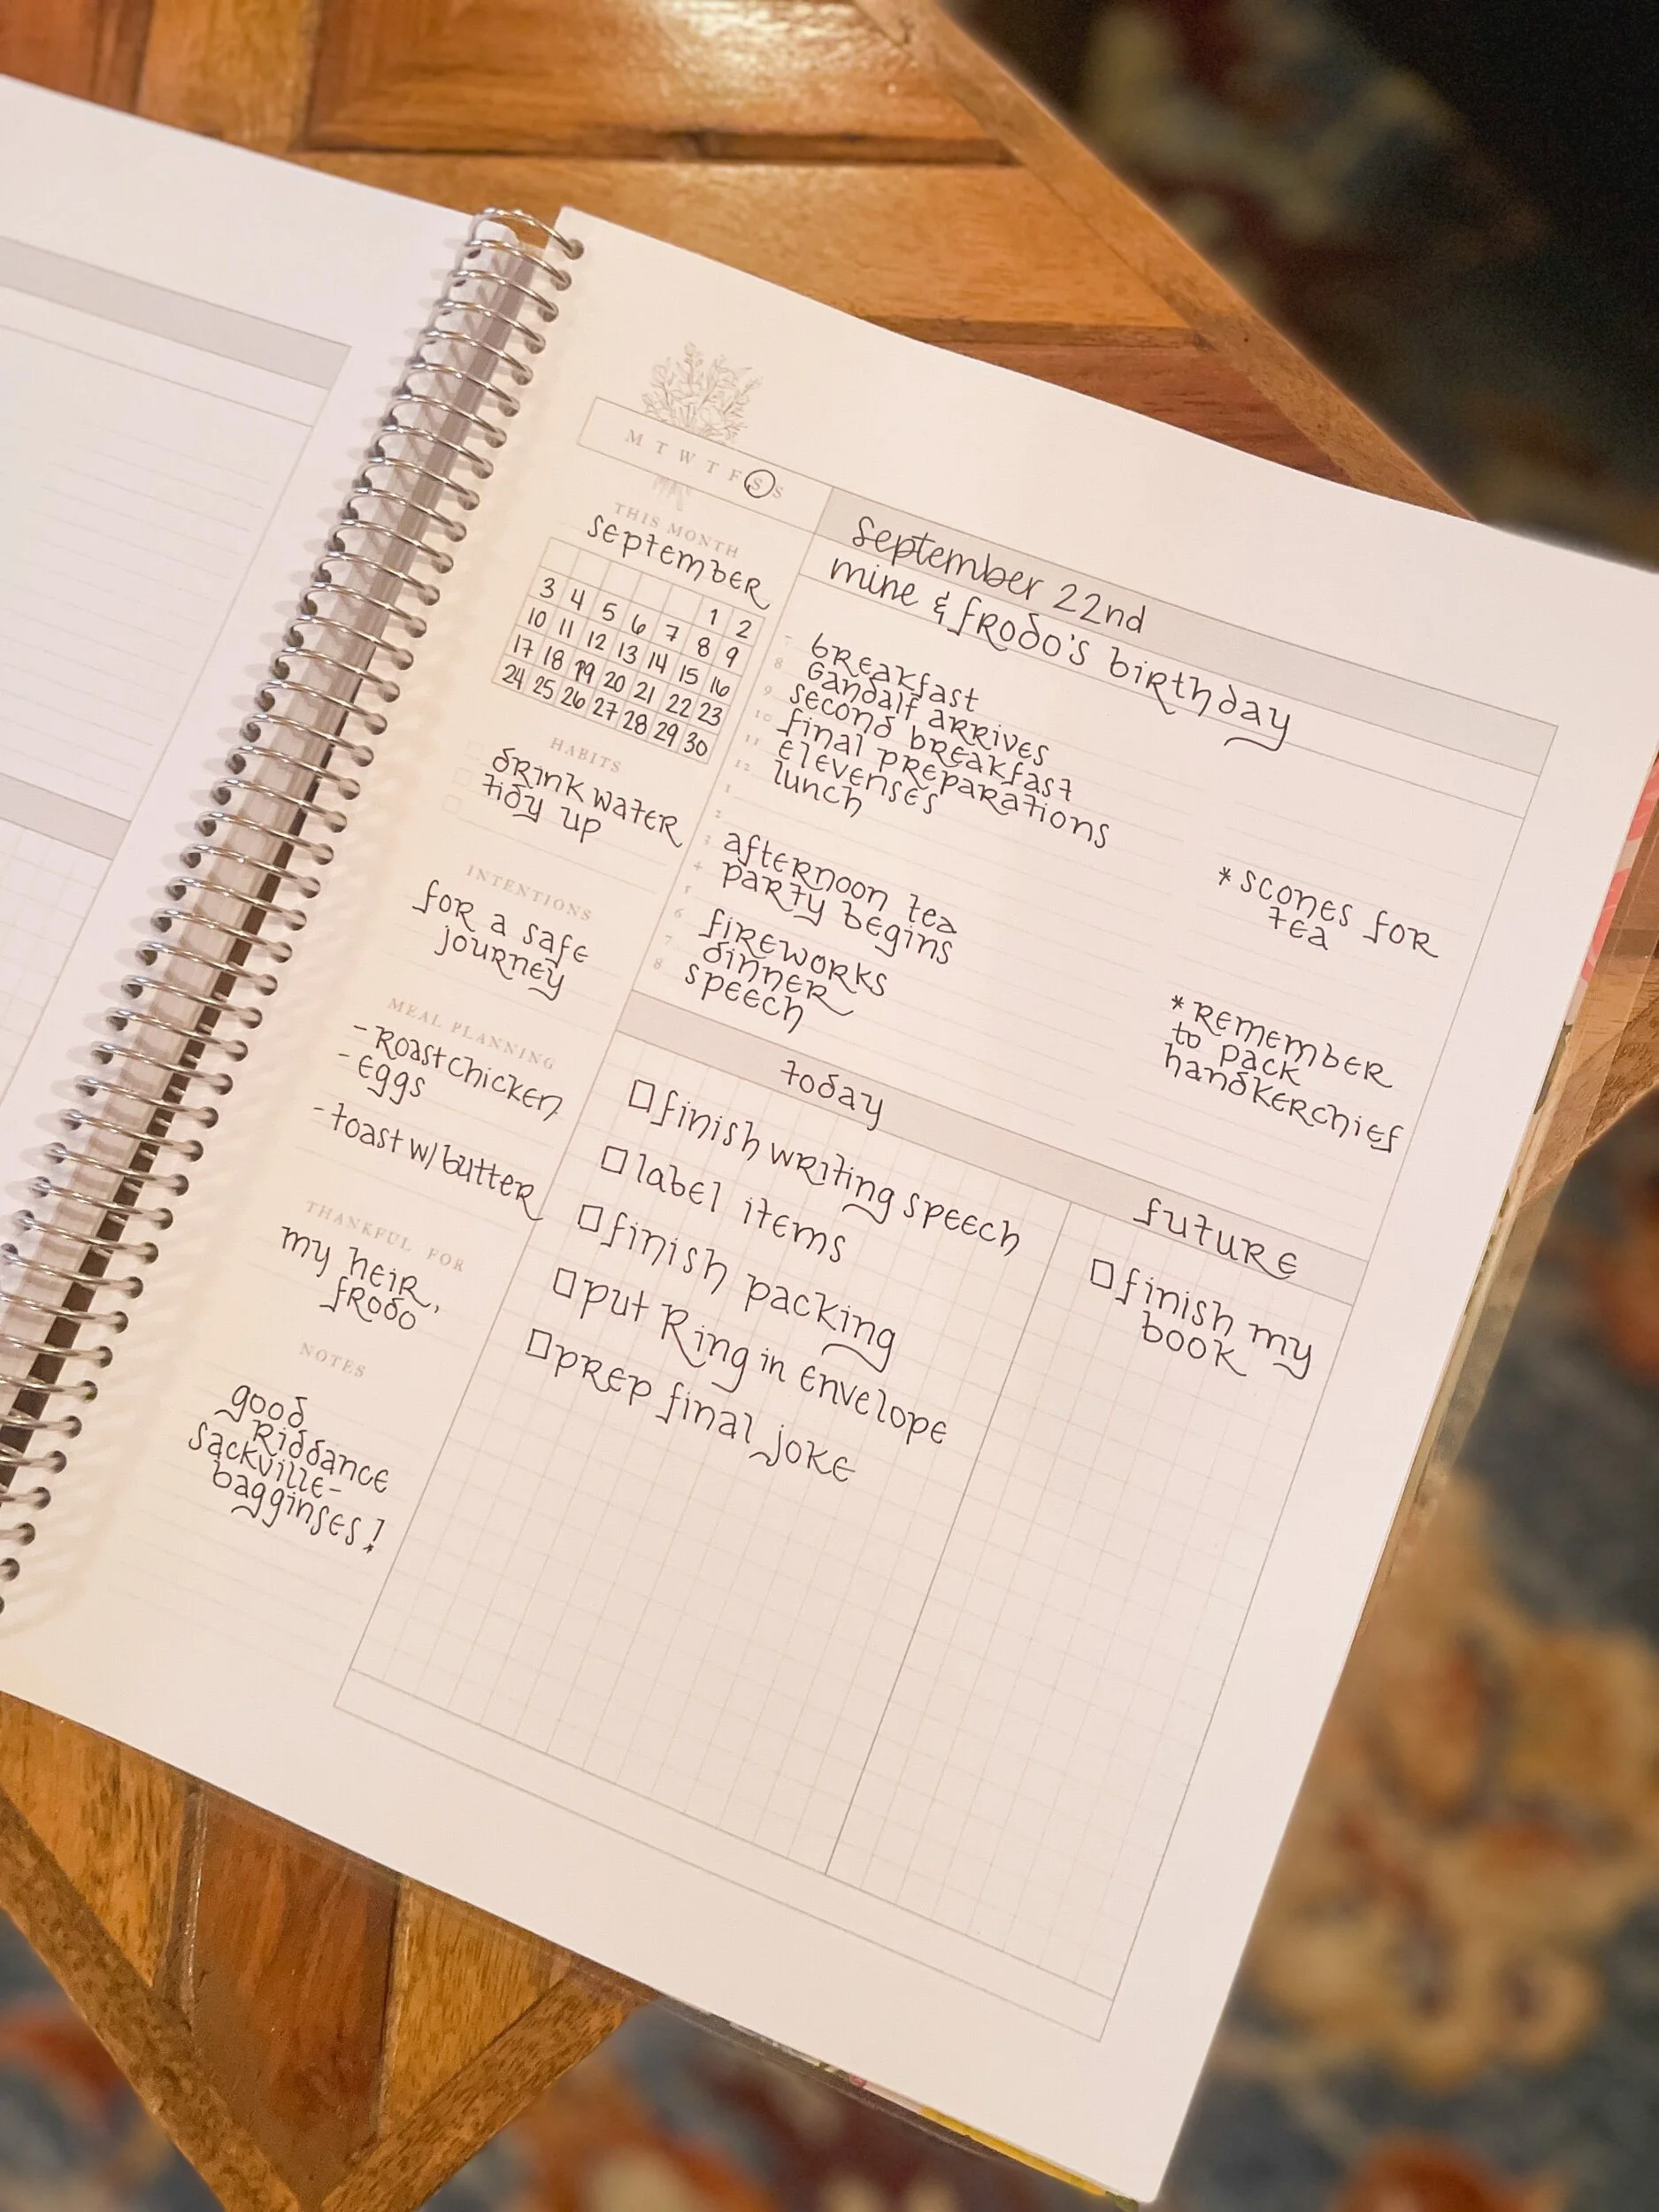 M T W T F S S
THIS MONTH
September
1 2
3 4 5 6 7 8 9
10 11 12 13 14 15 16
17 18 19 20 21 22 23
24 25 26 27 28 29 30
HABITS
drink water
tidy up
INTENTIONS
for a safe
journey
MEAL PLANNING
- Roast chicken
- eggs
- toast w/ butter
THANKFUL FOR
my heir,
frodo
NOTES
good
Riddance
Sackville-
bagginses!
September 22nd
mine & frodo's birthday
7 breakfast
8 Gandalf arrives
9 second breakfast
10 final preparations
11 elevenses
12 lunch
1
2
3 afternoon tea
4 party begins
5
6 fireworks
7 dinner
8 speech
* scones for
tea
* Remember
to pack
handkerchief
today
□ finish writing speech
□ label items
□ finish packing
□ put Ring in envelope
□ prep final joke
future
□ finish my
book